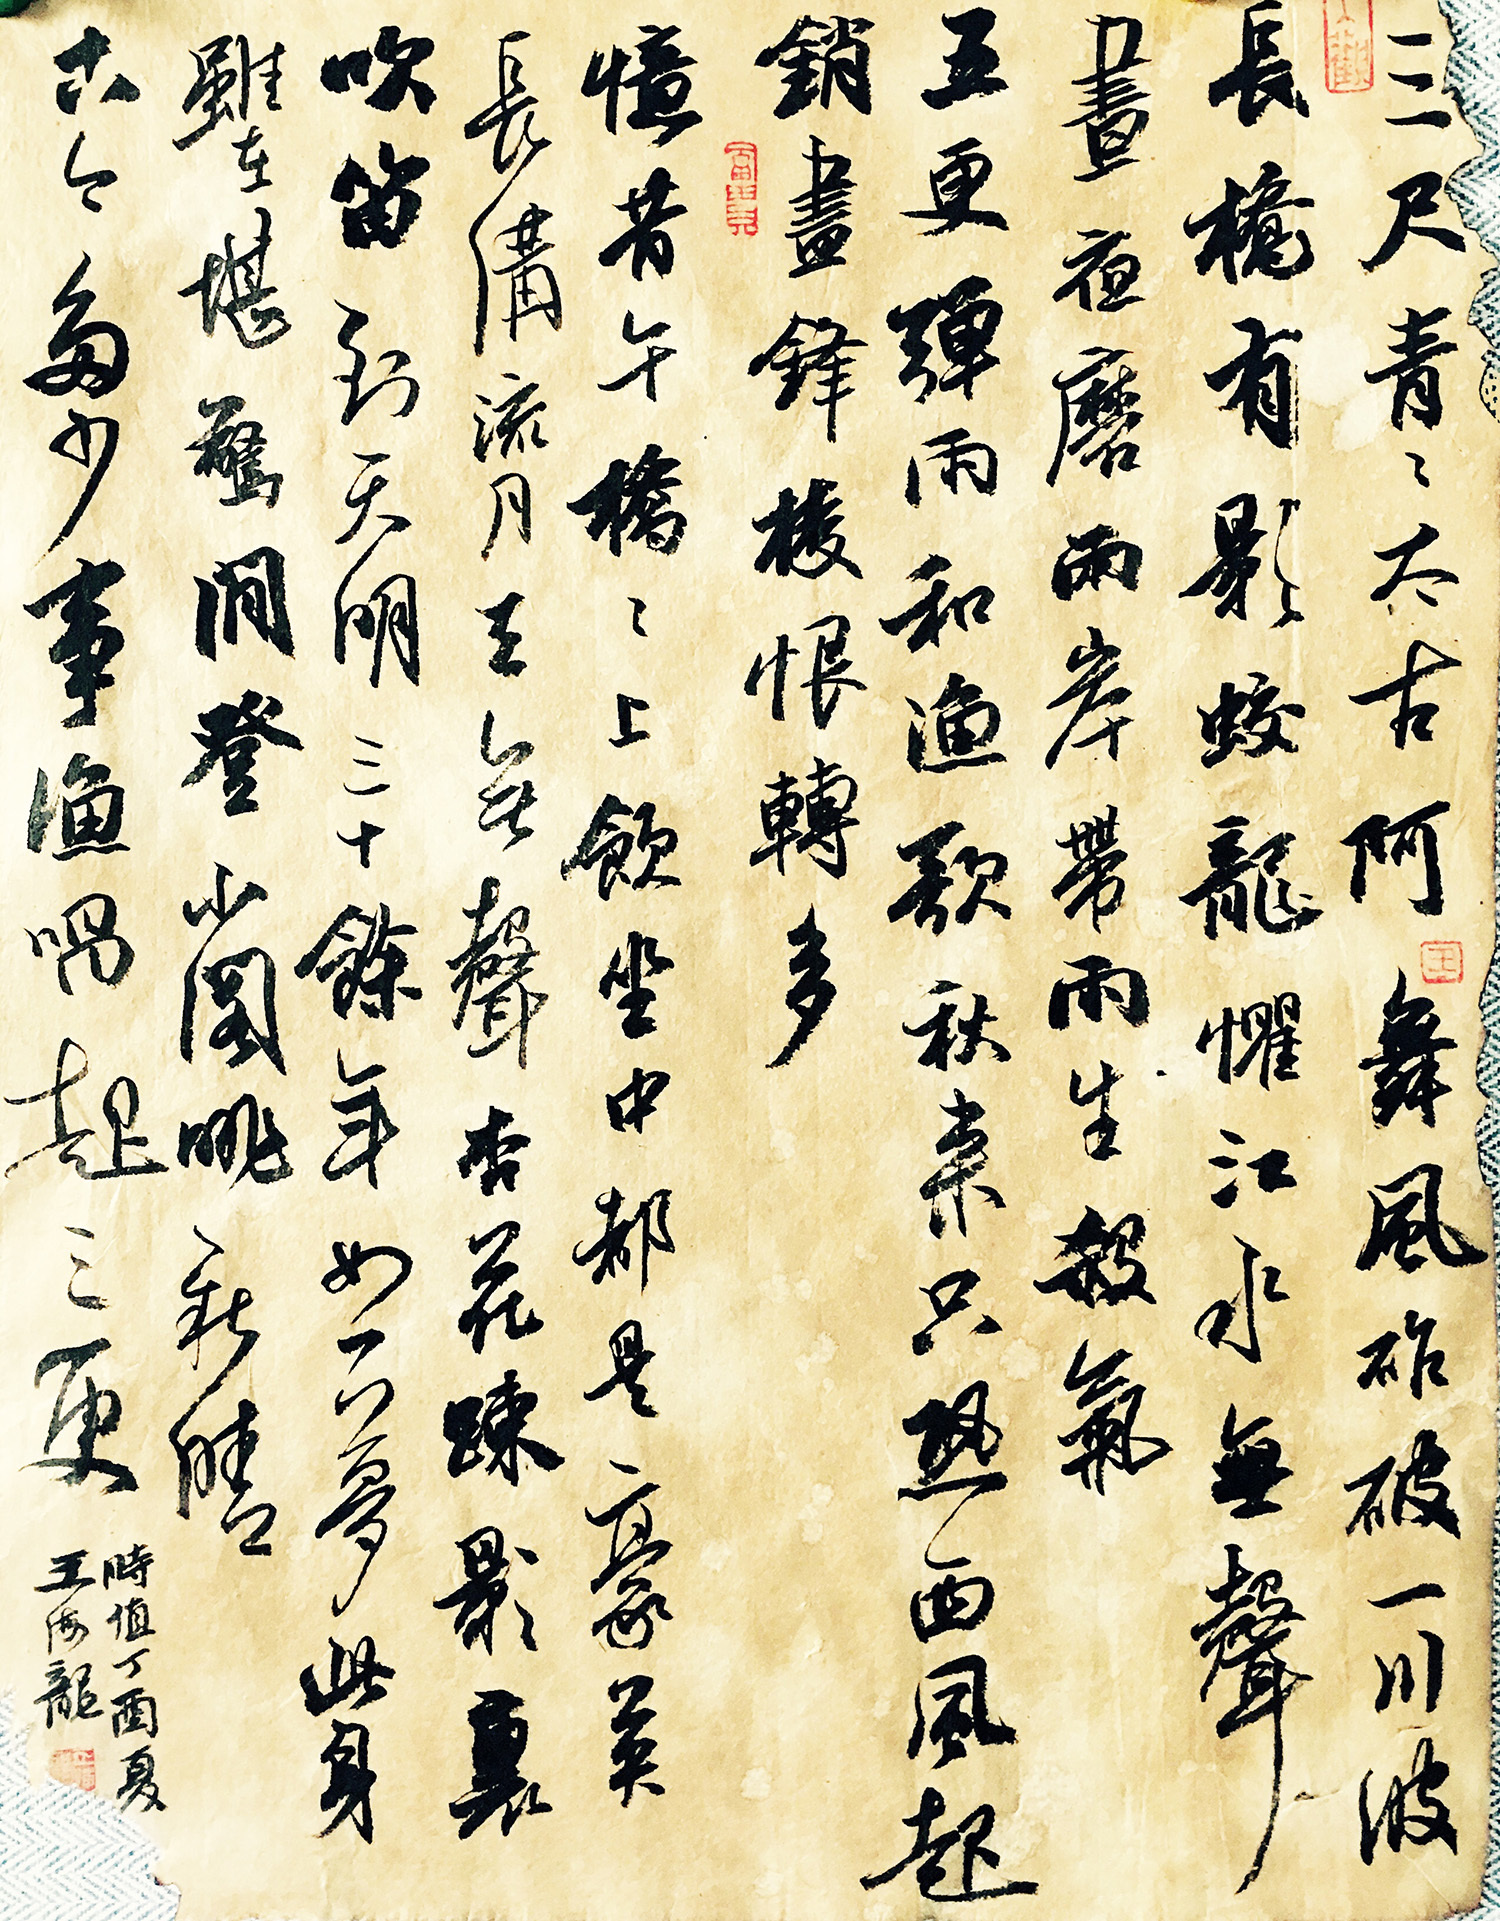 三尺青々太古阿舞風砟破一川波
長橋有影蛟龍懼江水無聲
晝夜磨兩岸帶雨生殺氣
五更彈雨和漁歌秋來只恐西風起
銷盡鋒棱恨轉多
憶昔午橋々上飲坐中都是豪英
長溝流月去無聲杏花疎影裏
吹笛到天明三十餘年如一夢此身
雖在堪驚閒登小閣眺新晴
古今多少事漁唱起三更
時值丁酉夏
王海龍